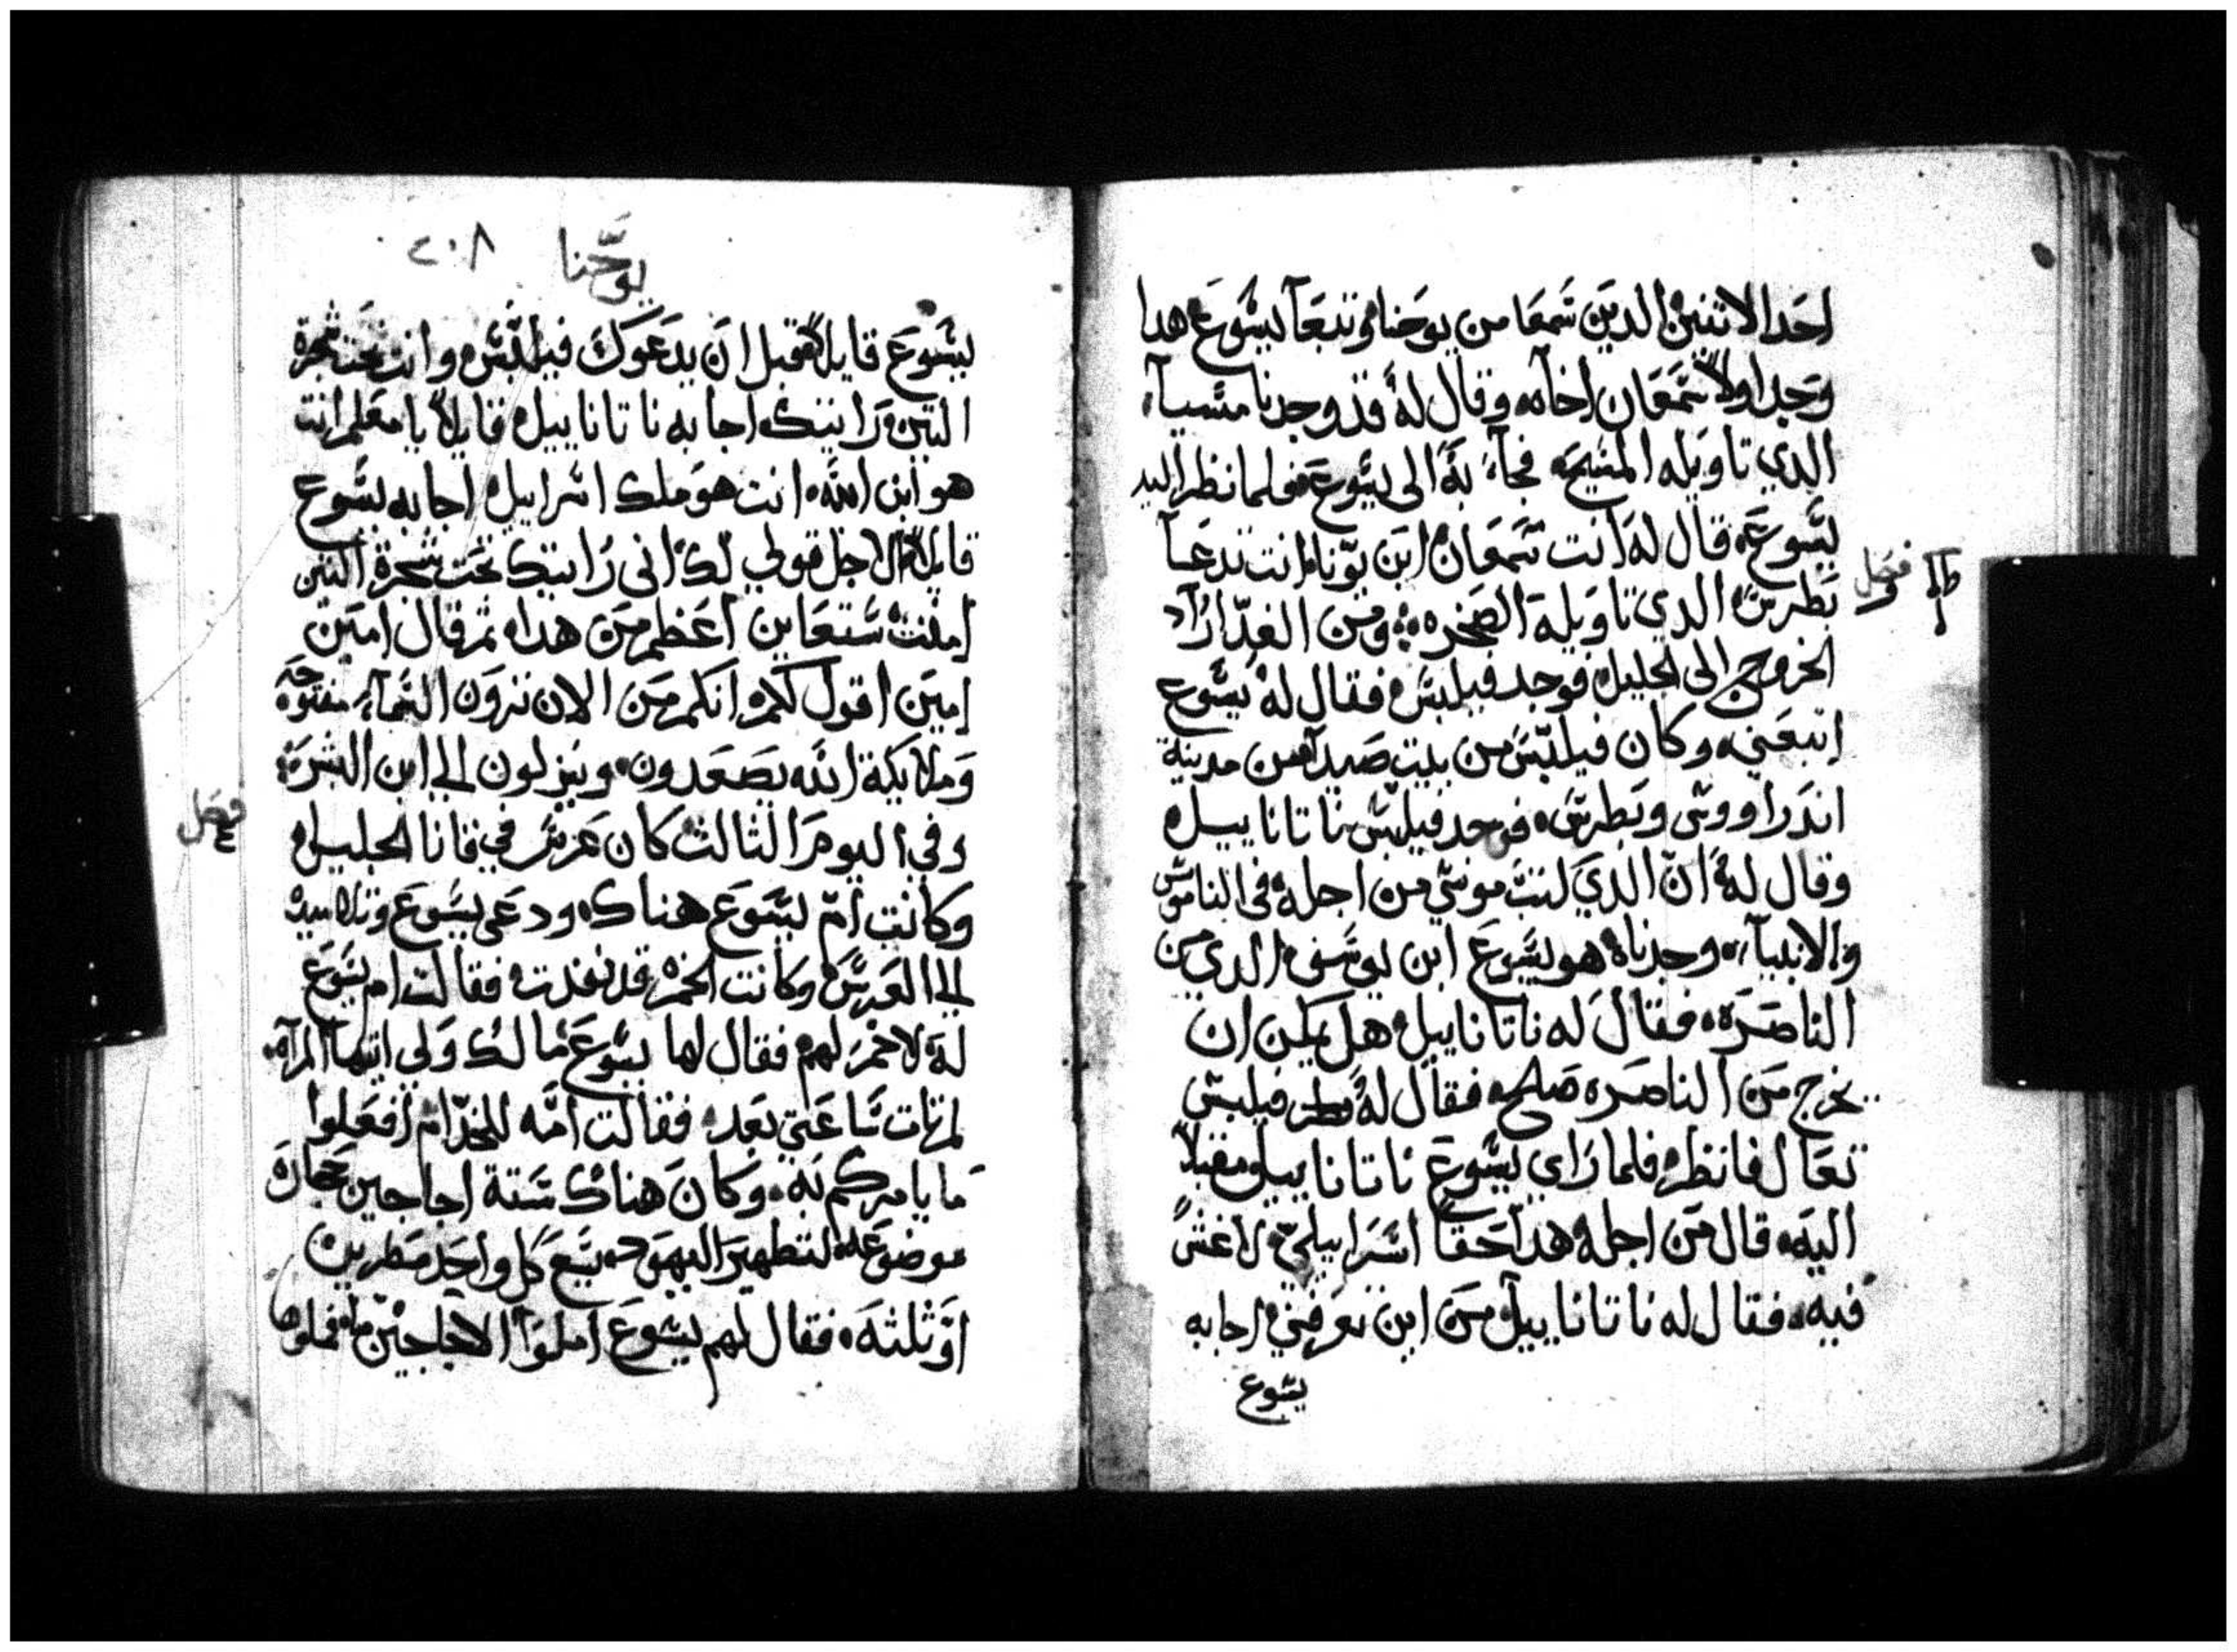 احد الاثنين الدين سمعا من يوحنا وتبعا يسوع هدا
وجد اولا سمعان اخاه وقال له قد وجدنا مسيا
الدي تاويله المسيح فجاء به الى يسوع فلما نظر اليه
يسوع قال له انت سمعان ابن يونا انت تدعا
بطرس الدي تاويله الصخره ومن الغد اراد
فصل
الخروج الى الجليل فوجد فيلبس فقال له يسوع
اتبعني وكان فيلبس من بيت صيدا من مدينة
اندراووس وبطرس فوجد فيلبس ناتاناييل
وقال له ان الدي كتب موسي من اجله في الناموس
والانبياء وجدناه هو يسوع ابن يوسف الدي من
الناصره فقال له ناتاناييل هل يمكن ان
يخرج من الناصره صلح فقال له فيلبس
تعال فانظر فلما راي يسوع ناتاناييل مقبلا
اليه قال من اجله هدا حقا اسراييلي لا غش
فيه فقال له ناتاناييل من اين تعرفني اجابه
يسوع
يوحنا ٢٠٨
يسوع قايلا قبل ان يدعوك فيلبس وانت تحت شجرة
التين رايتك اجابه ناتاناييل قايلا يا معلم انت
هو ابن الله انت هو ملك اسراييل اجابه يسوع
قايلا لاجل قولي لك اني رايتك تحت شجرة التين
امنت ستعاين اعظم من هدا ثم قال امين
امين اقول لكم انكم من الان ترون السماء مفتوحه
وملايكة الله يصعدون وينزلون الي ابن البشر
فصل
وفي اليوم الثالث كان عرس في قانا الجليل
وكانت ام يسوع هناك ودعي يسوع وتلاميده
الي العرس وكانت الخمر قد نفدت فقالت ام يسوع
له لا خمر لهم فقال لها يسوع ما لك ولي ايتها المراه
لم تات ساعتي بعد فقالت امه للخدام افعلوا
ما يامركم به وكان هناك ستة اجاجين حجاره
موضوعه لتطهير اليهود تسع كل واحد مطرين
او ثلثه فقال لهم يسوع املوا الاجاجين ماء فملوها